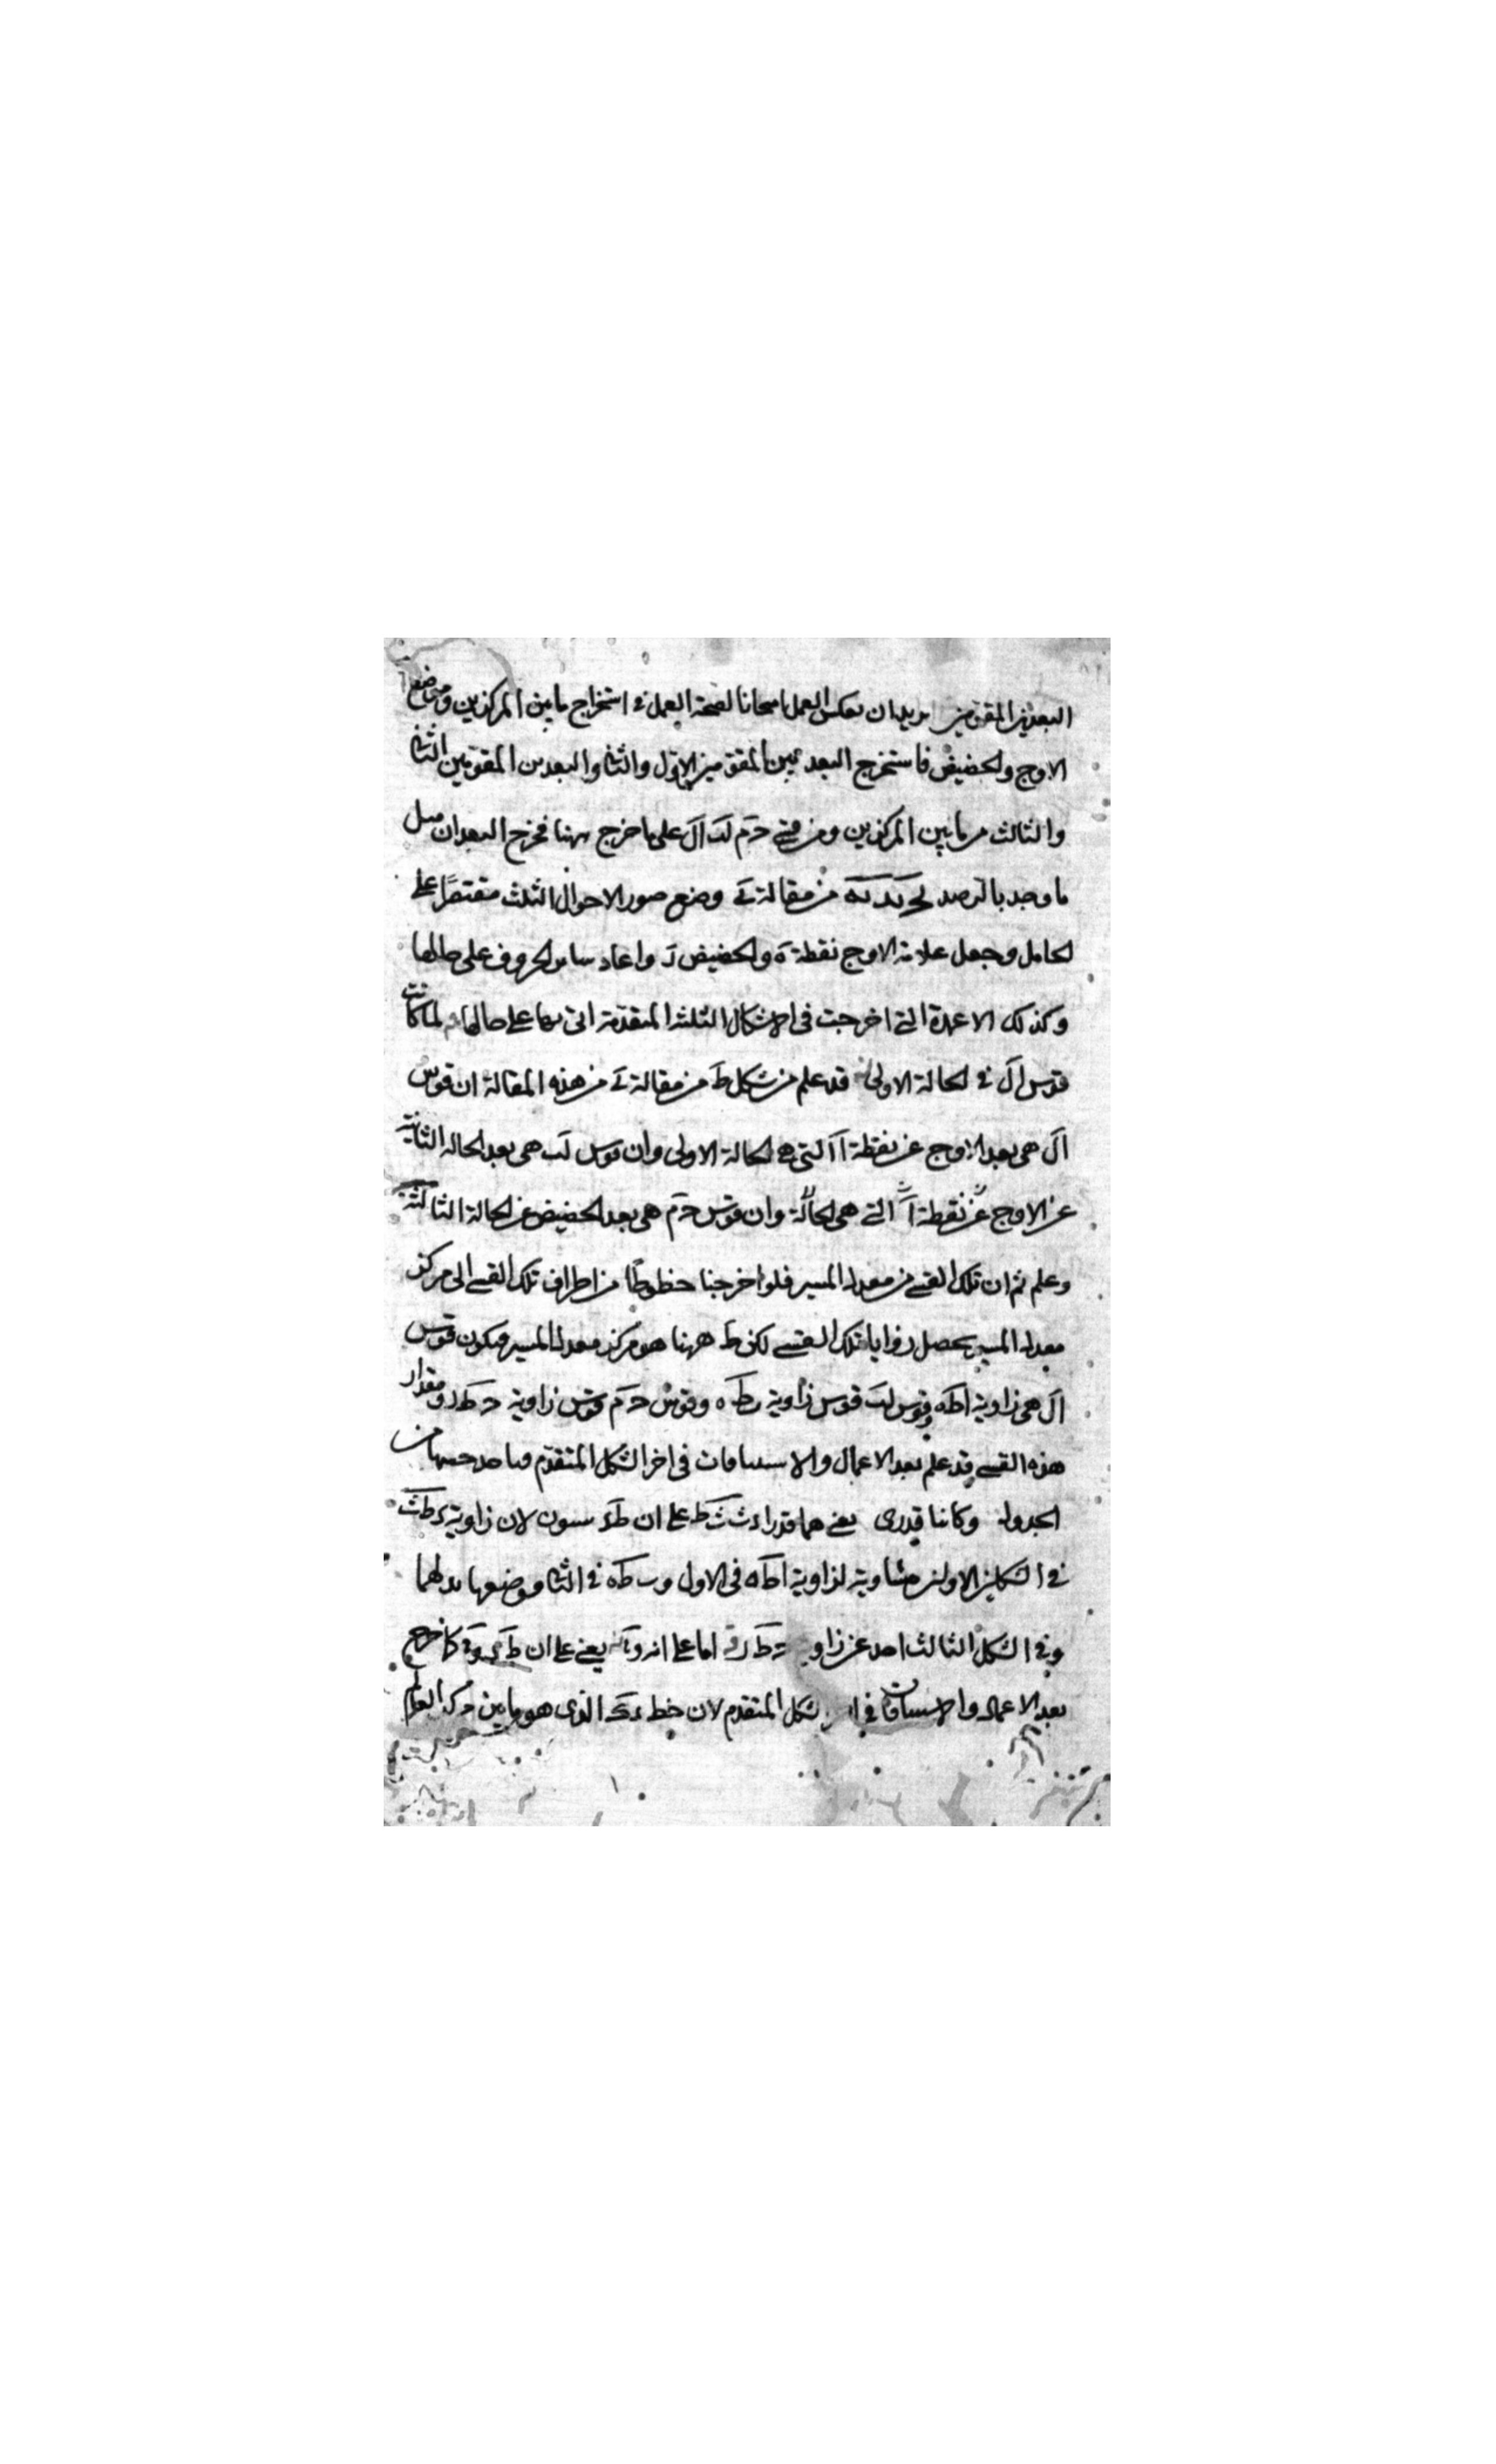 البعدين المقومين يريد ان يعكس العمل امتحانا لصحة العمل في استخراج ما بين المركزين وموضع
الاوج والحضيض فاستخرج البعد بين المقومين الاول والثاني والبعد بين المقومين الثاني
والثالث من ما بين المركزين ومن قسي حم لب ال على ما خرج ههنا فخرج البعدان مثل
ما وجد بالرصد من مقالة ى وضع صور الاحوال الثلث مقتصرا على
الحامل وجعل علامة الاوج نقطة ه والحضيض ر واعاد ساير الحروف على حالها
وكذلك الاعمدة التي اخرجت في الاشكال الثلثة المتقدمة على حالها لما كانت
قوس ال في الحالة الاولى قد علم من شكل ط من مقالة ى من هذه المقالة ان قوس
ال هي بعد الاوج عن نقطة ا التي هي الحالة الاولى وان قوس لب هي بعد الحالة الثانية
عن الاوج عن نقطة ا التي هي الحالة وان قوس حم هي بعد الحضيض عن الحالة الثالثة
وعلم ثم ان تلك القسي من معدل المسير فلو اخرجنا خطوطا من اطراف تلك القسي الى مركز
معدل المسير يحصل زوايا تلك القسي لكن ط ههنا هو مركز معدل المسير فيكون قوس
ال هي زاوية اطه وقوس لب قوس زاوية بطه وقوس حم قوس زاوية حطر ومقدار
هذه القسي قد علم بعد الاعمال والاستيناقات في اخر الشكل المتقدم من
الجدول وكانا قدرى يعني هما قدرا ث ثط على ان طد ستون لان زاوية دطث
في الشكلين الاولين مساوية لزاوية اطه في الاول وبطه في الثاني فوضعها بدلهما
وفي الشكل الثالث عن زاوية حطر اما على انه يعني على ان كما خرج
بعد الاعمال والاستيناقات في الشكل المتقدم لان خط الذي هو ما بين مركز العالم